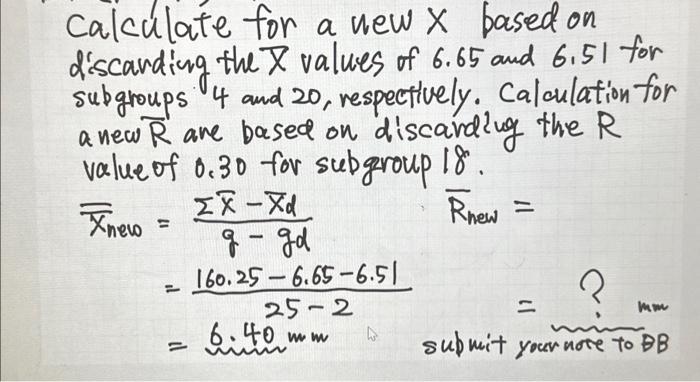 Calculate for a new X based on
discarding the X̅ values of 6.65 and 6.51 for
subgroups 4 and 20, respectively. Calculation for
a new R̅ are based on discarding the R
value of 0.30 for subgroup 18.
X̿new = ΣX̅ - X̅d / g - gd
R̅new =
= 160.25 - 6.65 - 6.51 / 25 - 2
= 6.40 mm
= ? mm
submit your note to DB